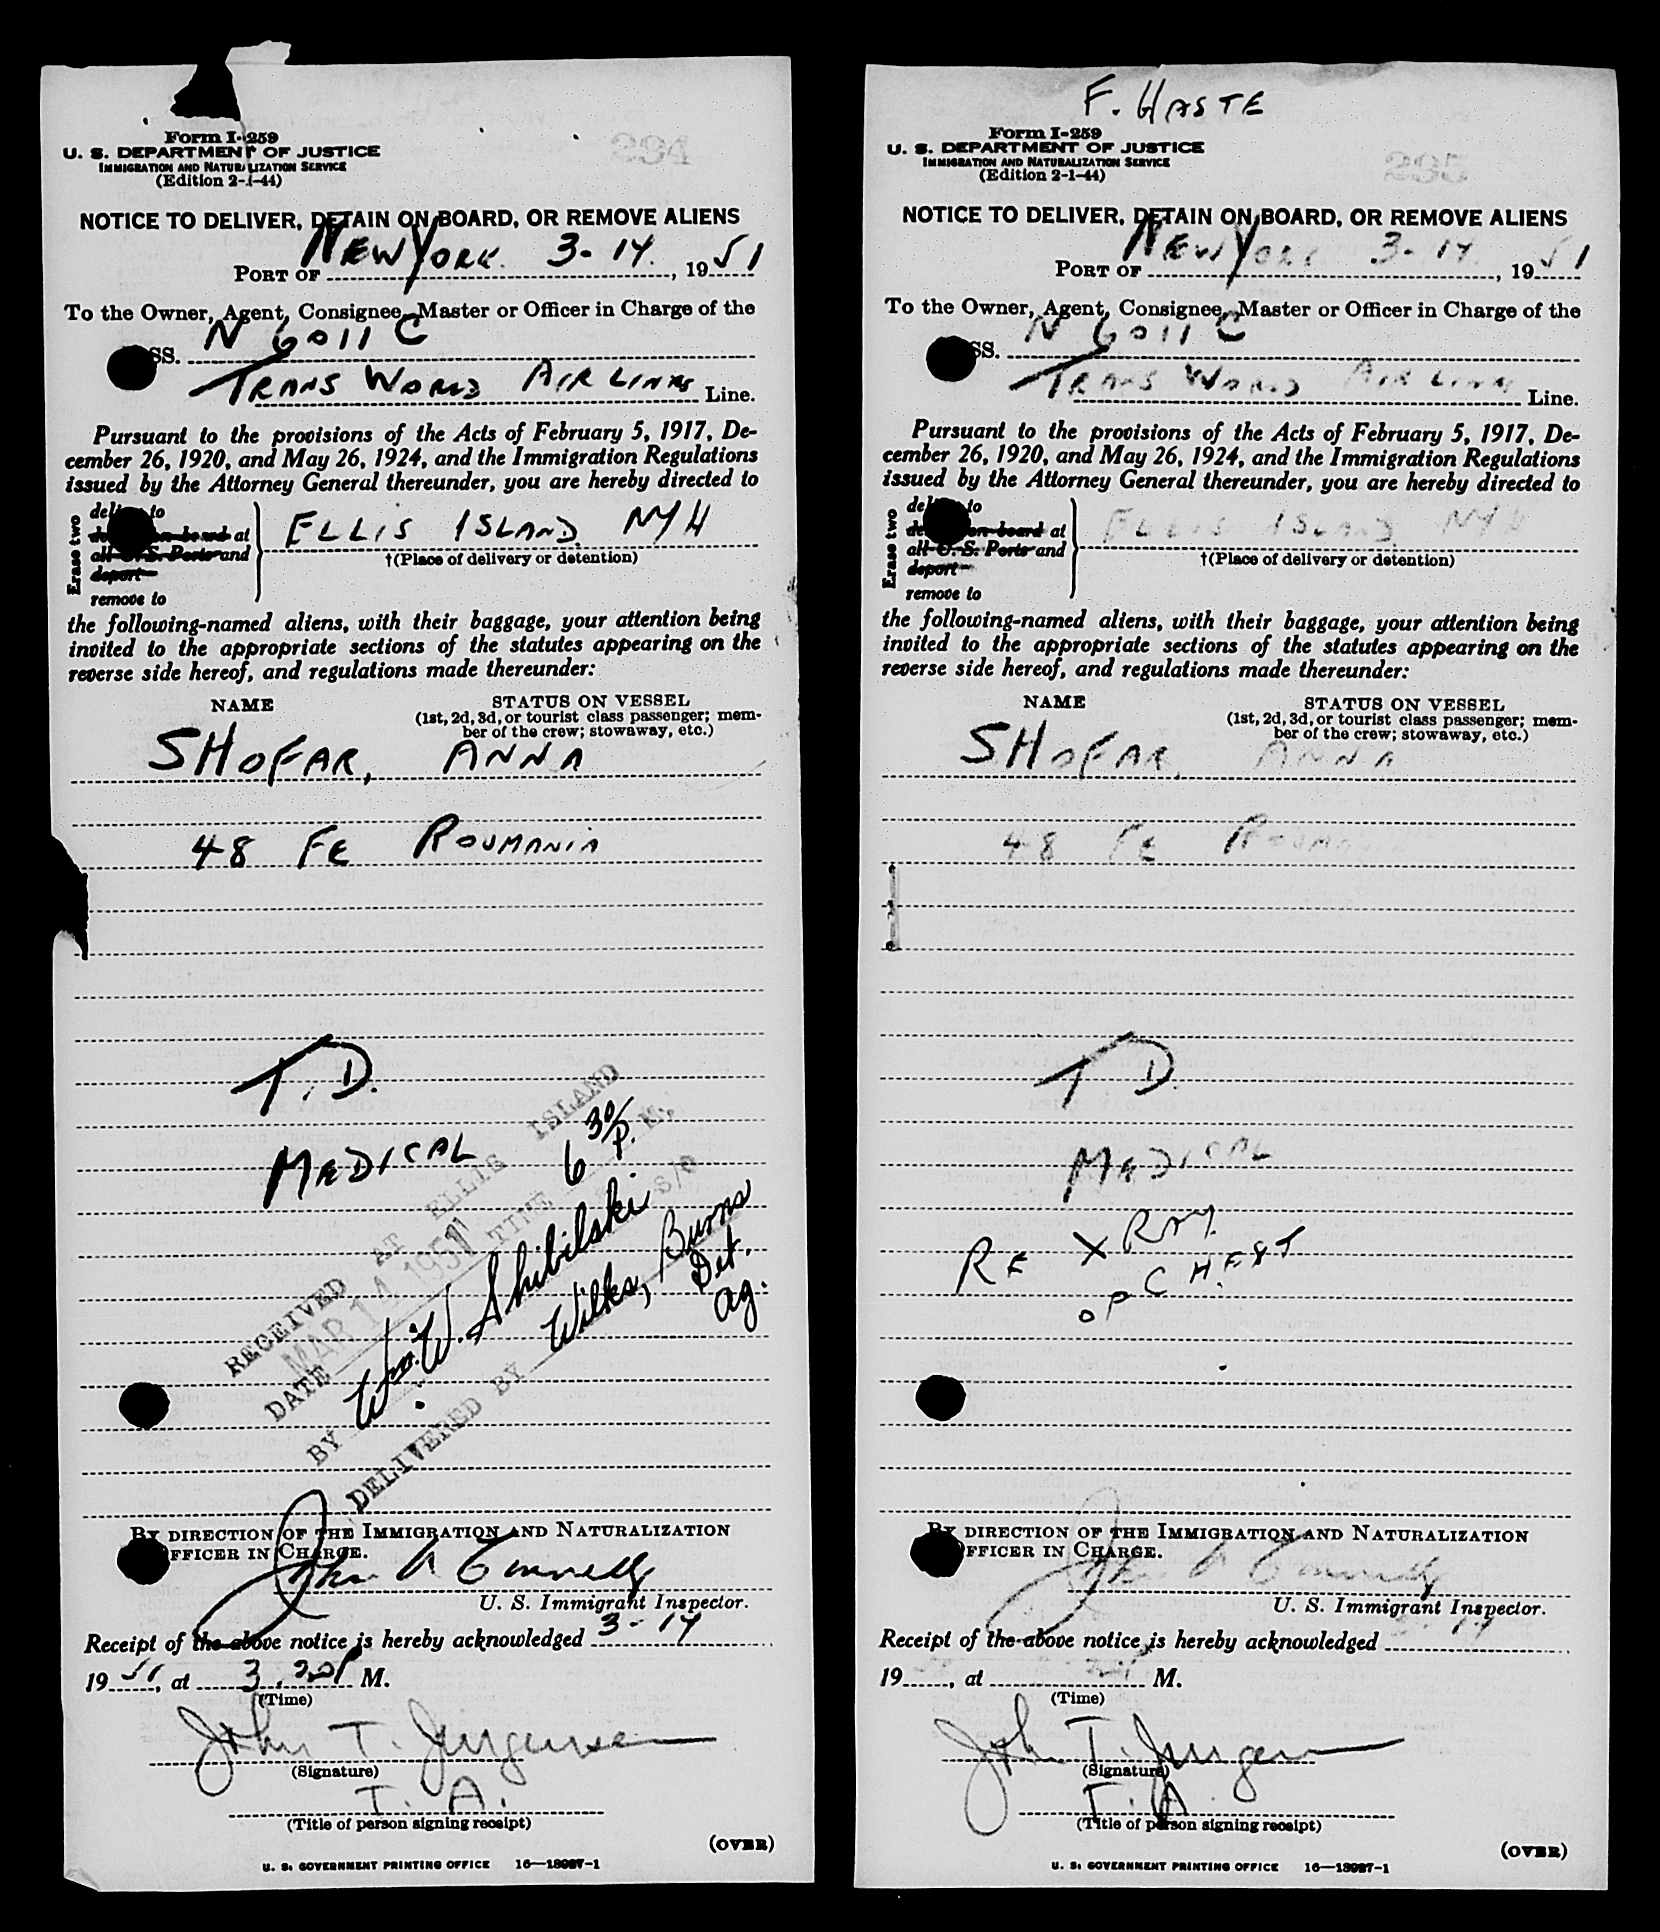 Form I-259
U. S. DEPARTMENT OF JUSTICE
IMMIGRATION AND NATURALIZATION SERVICE
(Edition 2-1-44)
294
NOTICE TO DELIVER, DETAIN ON BOARD, OR REMOVE ALIENS
PORT OF NEW YORK 3-14, 1951
To the Owner, Agent, Consignee, Master or Officer in Charge of the
SS. N 6011 C
TRANS WORLD AIR LINES Line.
Pursuant to the provisions of the Acts of February 5, 1917, De-
cember 26, 1920, and May 26, 1924, and the Immigration Regulations
issued by the Attorney General thereunder, you are hereby directed to
Erase two
deliver to
detain on board at
all U. S. Ports and
deport
remove to
ELLIS ISLAND NYH
†(Place of delivery or detention)
the following-named aliens, with their baggage, your attention being
invited to the appropriate sections of the statutes appearing on the
reverse side hereof, and regulations made thereunder:
NAME STATUS ON VESSEL
(1st, 2d, 3d, or tourist class passenger; mem-
ber of the crew; stowaway, etc.)
SHOFAR, ANNA
48 FE ROUMANIA
T. D.
MEDICAL
RECEIVED AT ELLIS ISLAND
DATE MAR 14 1951 TIME 6 30/P. M.
BY Wm. W. Shibilski S/O
DELIVERED BY Wilks, Burns
Det.
Ag.
BY DIRECTION OF THE IMMIGRATION AND NATURALIZATION
OFFICER IN CHARGE.
John A Connelly
U. S. Immigrant Inspector.
Receipt of the above notice is hereby acknowledged 3-14
1951, at 3.20P M.
(Time)
John T. Jurgensen
(Signature)
T. A.
(Title of person signing receipt)
(OVER)
U. S. GOVERNMENT PRINTING OFFICE 16—13927-1
F. HASTE
Form I-259
U. S. DEPARTMENT OF JUSTICE
IMMIGRATION AND NATURALIZATION SERVICE
(Edition 2-1-44)
295
NOTICE TO DELIVER, DETAIN ON BOARD, OR REMOVE ALIENS
PORT OF NEW YORK 3-14, 1951
To the Owner, Agent, Consignee, Master or Officer in Charge of the
SS. N 6011 C
TRANS WORLD AIR LINES Line.
Pursuant to the provisions of the Acts of February 5, 1917, De-
cember 26, 1920, and May 26, 1924, and the Immigration Regulations
issued by the Attorney General thereunder, you are hereby directed to
Erase two
deliver to
detain on board at
all U. S. Ports and
deport
remove to
ELLIS ISLAND NYH
†(Place of delivery or detention)
the following-named aliens, with their baggage, your attention being
invited to the appropriate sections of the statutes appearing on the
reverse side hereof, and regulations made thereunder:
NAME STATUS ON VESSEL
(1st, 2d, 3d, or tourist class passenger; mem-
ber of the crew; stowaway, etc.)
SHOFAR, ANNA
48 FE ROUMANIA
T D.
MEDICAL
RE X RAY
OF CHEST
BY DIRECTION OF THE IMMIGRATION AND NATURALIZATION
OFFICER IN CHARGE.
John A Connelly
U. S. Immigrant Inspector.
Receipt of the above notice is hereby acknowledged 3-14
19, at M.
(Time)
John T. Jurgen
(Signature)
T. A.
(Title of person signing receipt)
(OVER)
U. S. GOVERNMENT PRINTING OFFICE 16—13927-1